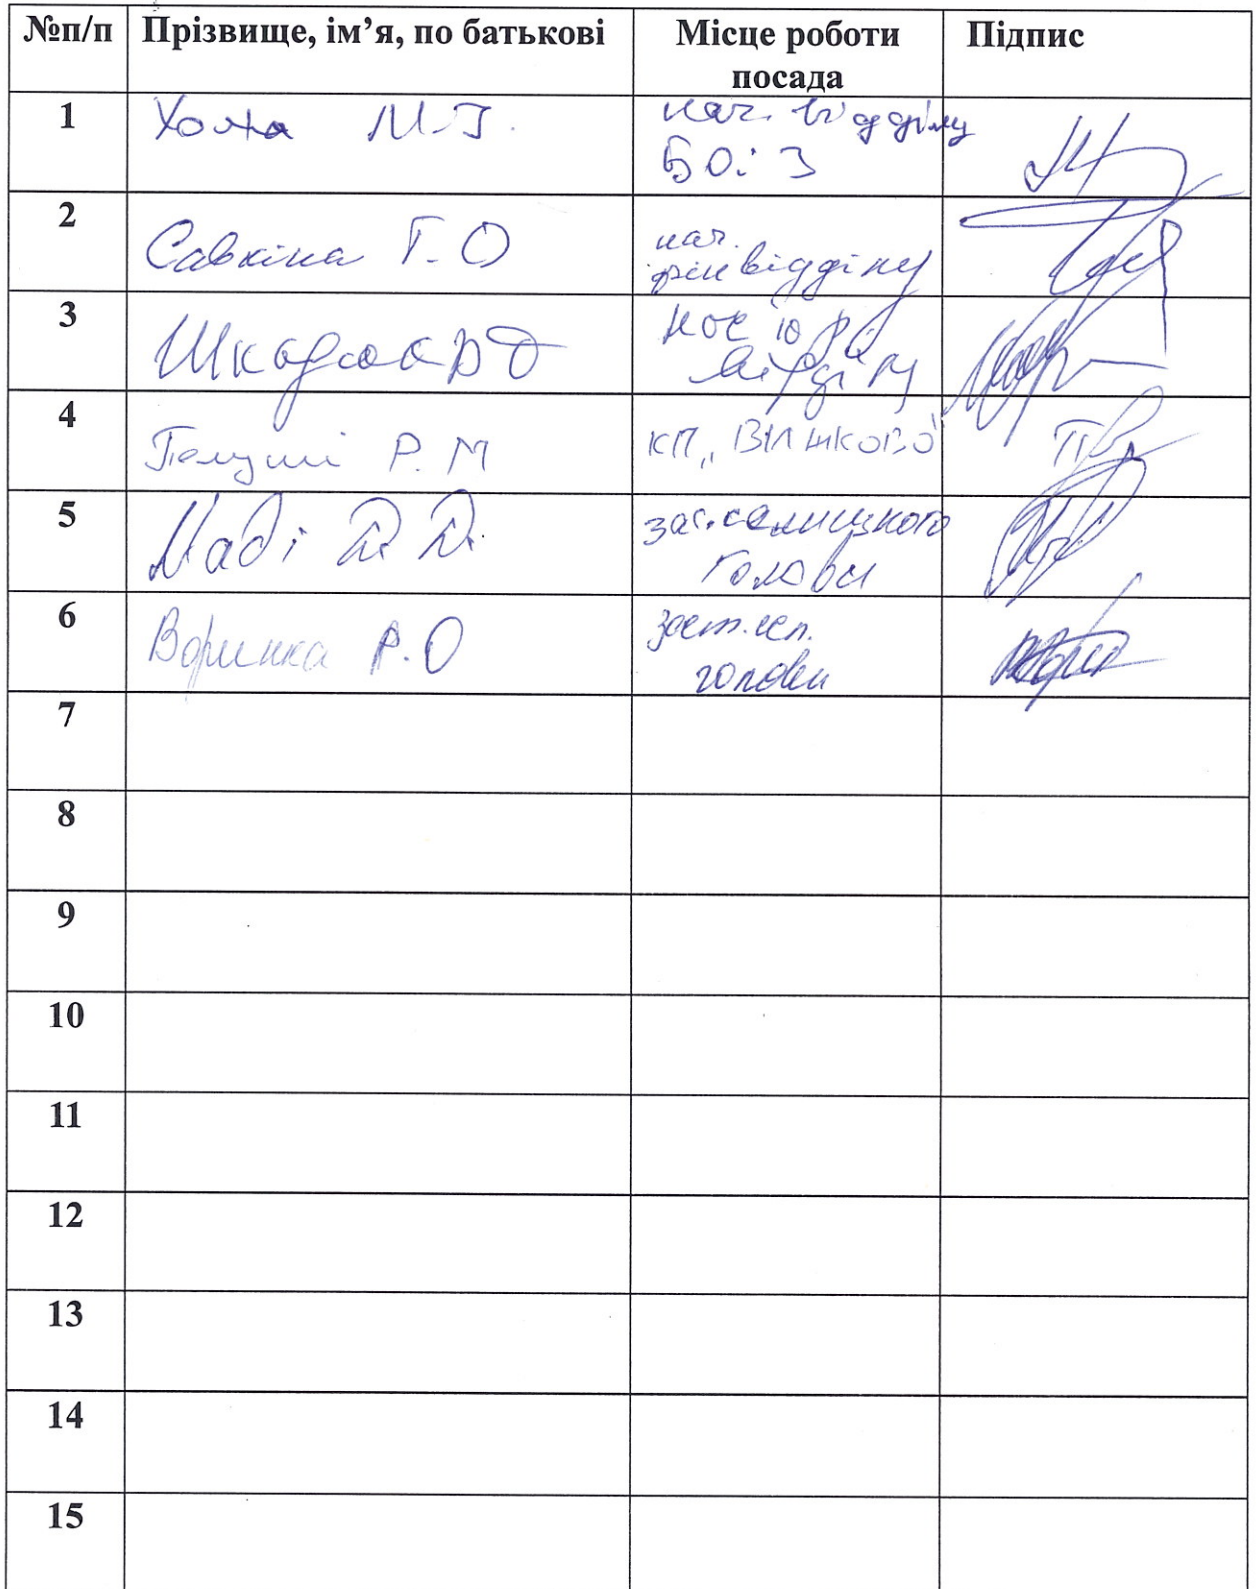 №п/п Прізвище, ім’я, по батькові Місце роботи Підпис
посада
1 Хома М.І. нач. відділу
БОіЗ
2 Савкіна Г.О нач.
фінвідділу
3 юр
відділу
4 Р.М КП „Вілшково"
5 Маді заст.селищного
голови
6 Воринка Р.О заст.сел.
голови
7
8
9
10
11
12
13
14
15